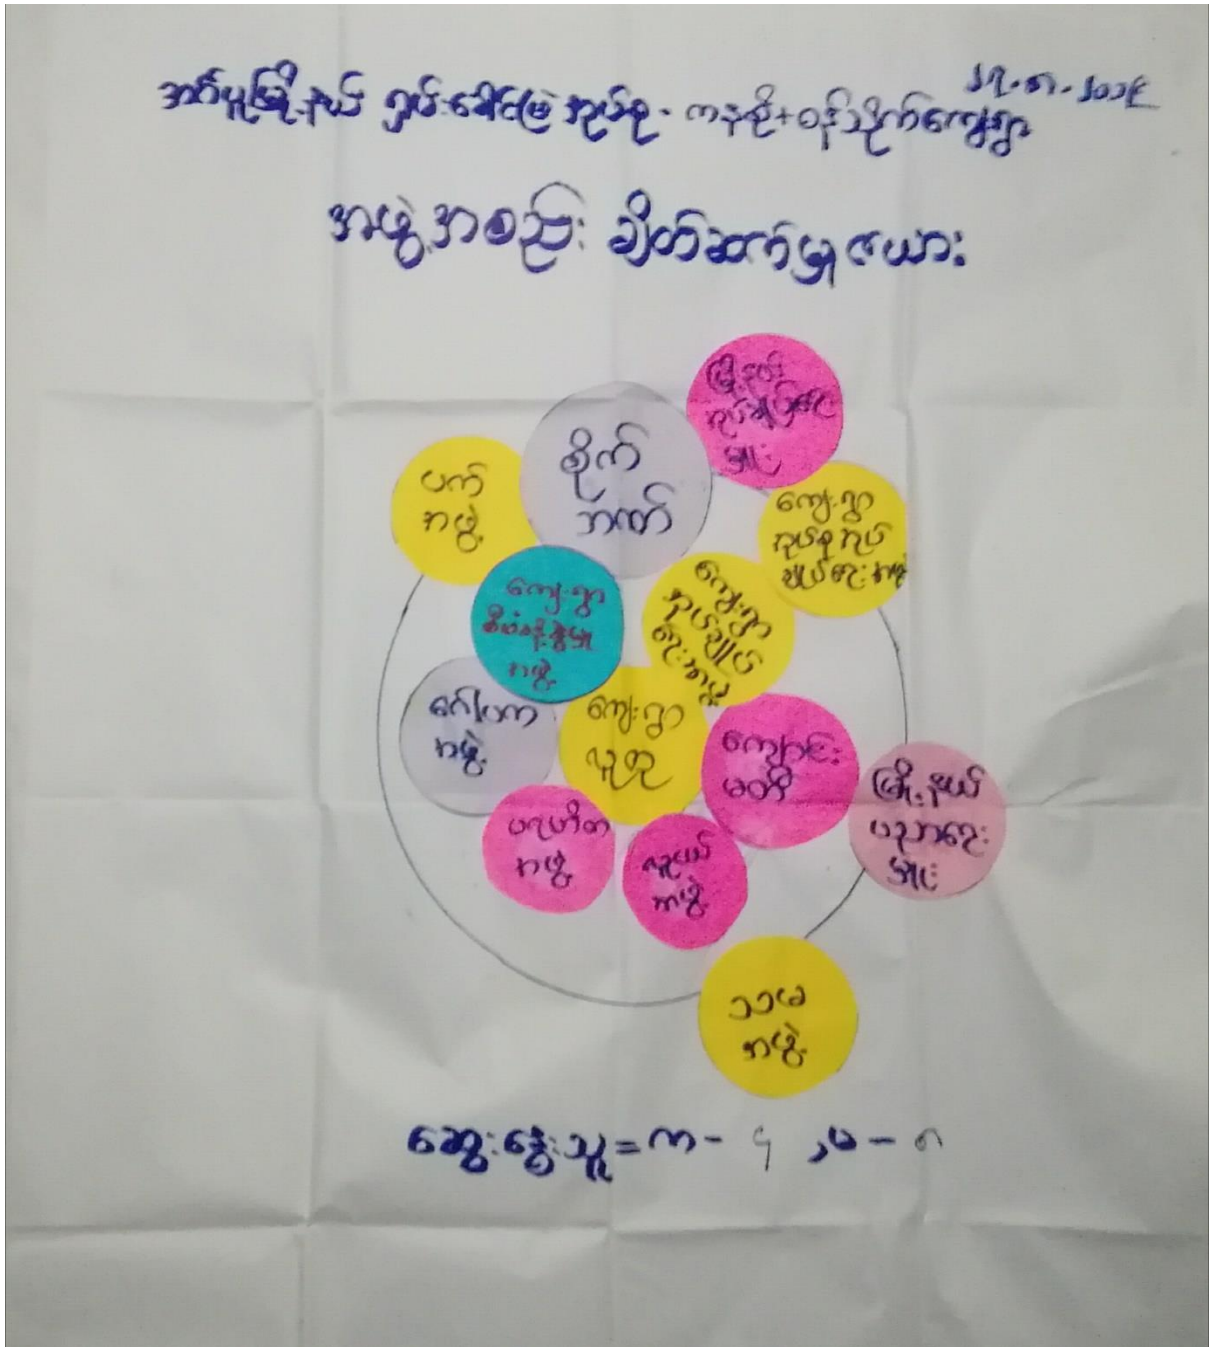 ၁၇.၈.၂၀၁၉
အင်္ဂပူမြို့နယ် ရှမ်းခေါင်မြဲအုပ်စု - ကနစို+ဝန်သိုက်ကျေးရွာ
အဖွဲ့အစည်း ချိတ်ဆက်မှုဇယား
မြို့နယ်
အုပ်ချုပ်ရေး
မှူး
စိုက်
ဘဏ်
ပက်
အဖွဲ့
ကျေးရွာ
အုပ်စုအုပ်
ချုပ်ရေးအဖွဲ့
ကျေးရွာ
အုပ်ချုပ်
ရေးအဖွဲ့
ကျေးရွာ
စီမံခန့်ခွဲမှု
အဖွဲ့
ဂေါပက
အဖွဲ့
ကျေးရွာ
လူထု
ကျောင်း
မတီ
မြို့နယ်
ပညာရေး
မှူး
ပရဟိတ
အဖွဲ့
လူငယ်
အဖွဲ့
သသမ
အဖွဲ့
ဆွေးနွေးသူ = ကျ - ၄ ,မ - ၈